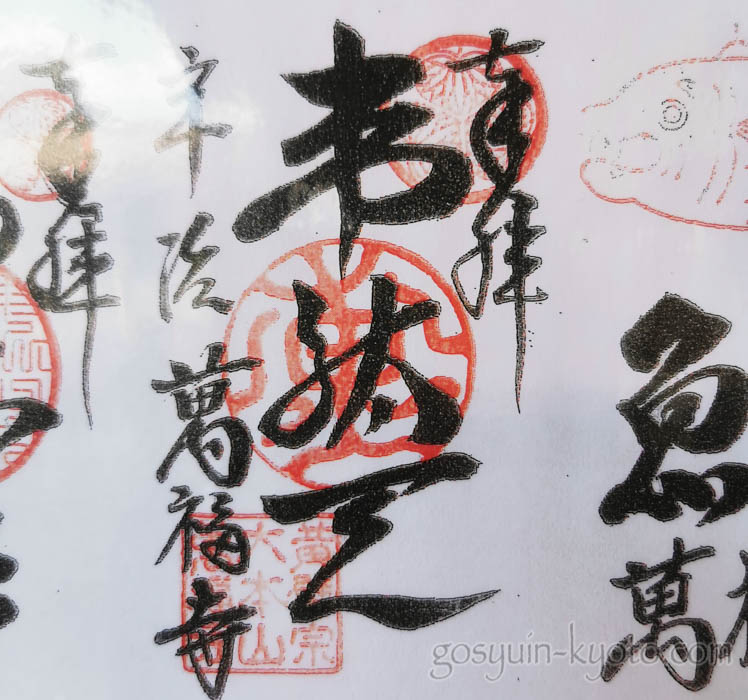 魚
萬
奉拝
韋駄天
宇治 萬福寺
黄檗宗
大本山
奉拝
gosyuin-kyoto.com